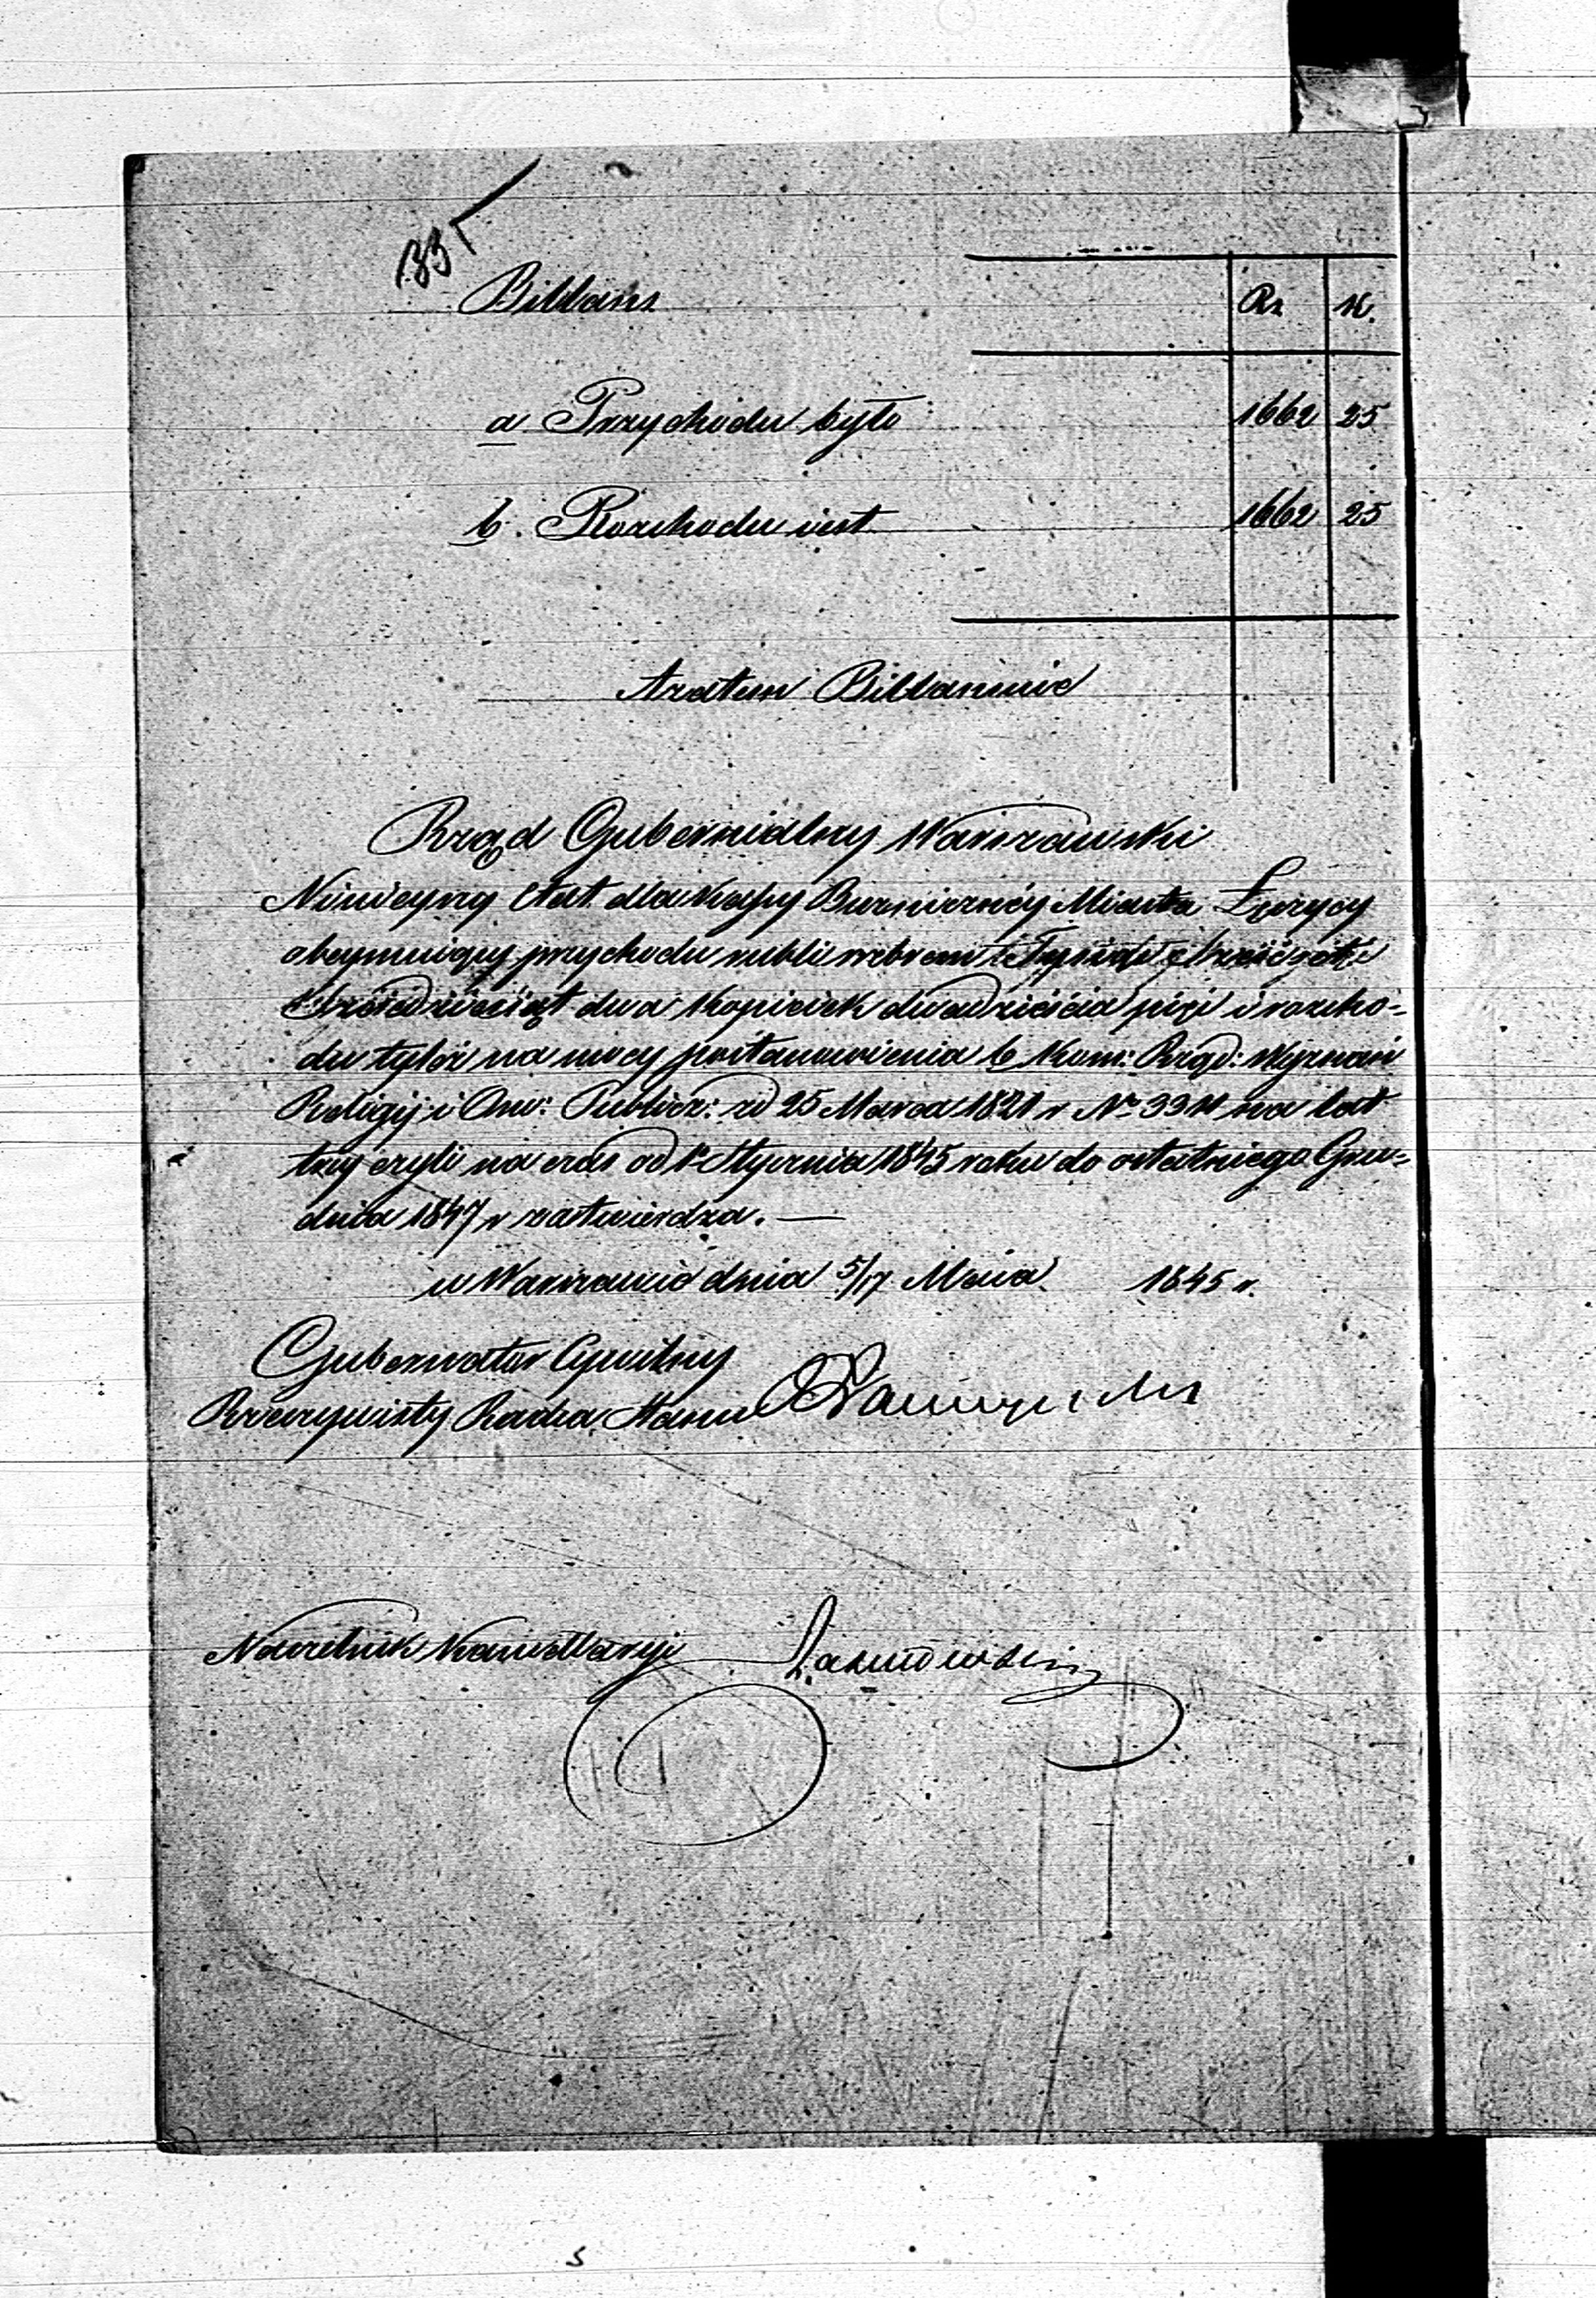 133
Billans
Rs k.
a Przychodu było 1662 25
b. Rozchodu iest 1662 25
zatem Billansuie
Rząd Gubernialny Warszawski
Ninieyszy Etat dla Kassy Bużniczney Miasta Łęczycy
obeymuiący przychodu rubli srebrem Tysiąc sześćset
sześćdziesiąt dwa kopieiek dwadzieścia pięć i rozcho-
du tyleż na mocy postanowienia b. Kom: Rząd: Wyznań
Religij i Ośw: Public: zd 25 Marca 1821 r No 3311 na lat
trzy czyli na czas od 1o Stycznia 1845 roku do ostatniego Gru-
dnia 1847 r zatwierdza. —
w Warszawie dnia 5/17 Maia 1845 r.
Gubernator Cywilny
Rzeczywisty Radca Stanu
Naczelnik Kancellaryi